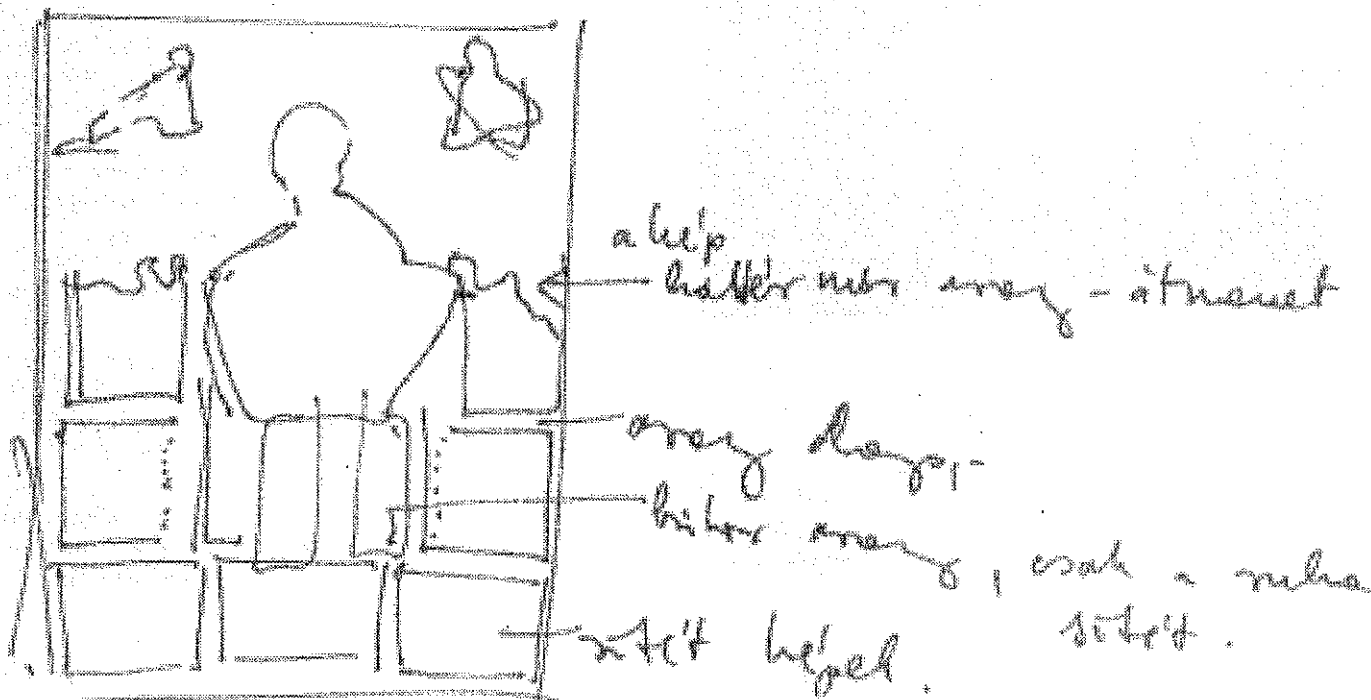 a kép
háttér már arany - átmenet
arany alap,-
bíbor arany, csak a ruha
sötét.
sötét képek.